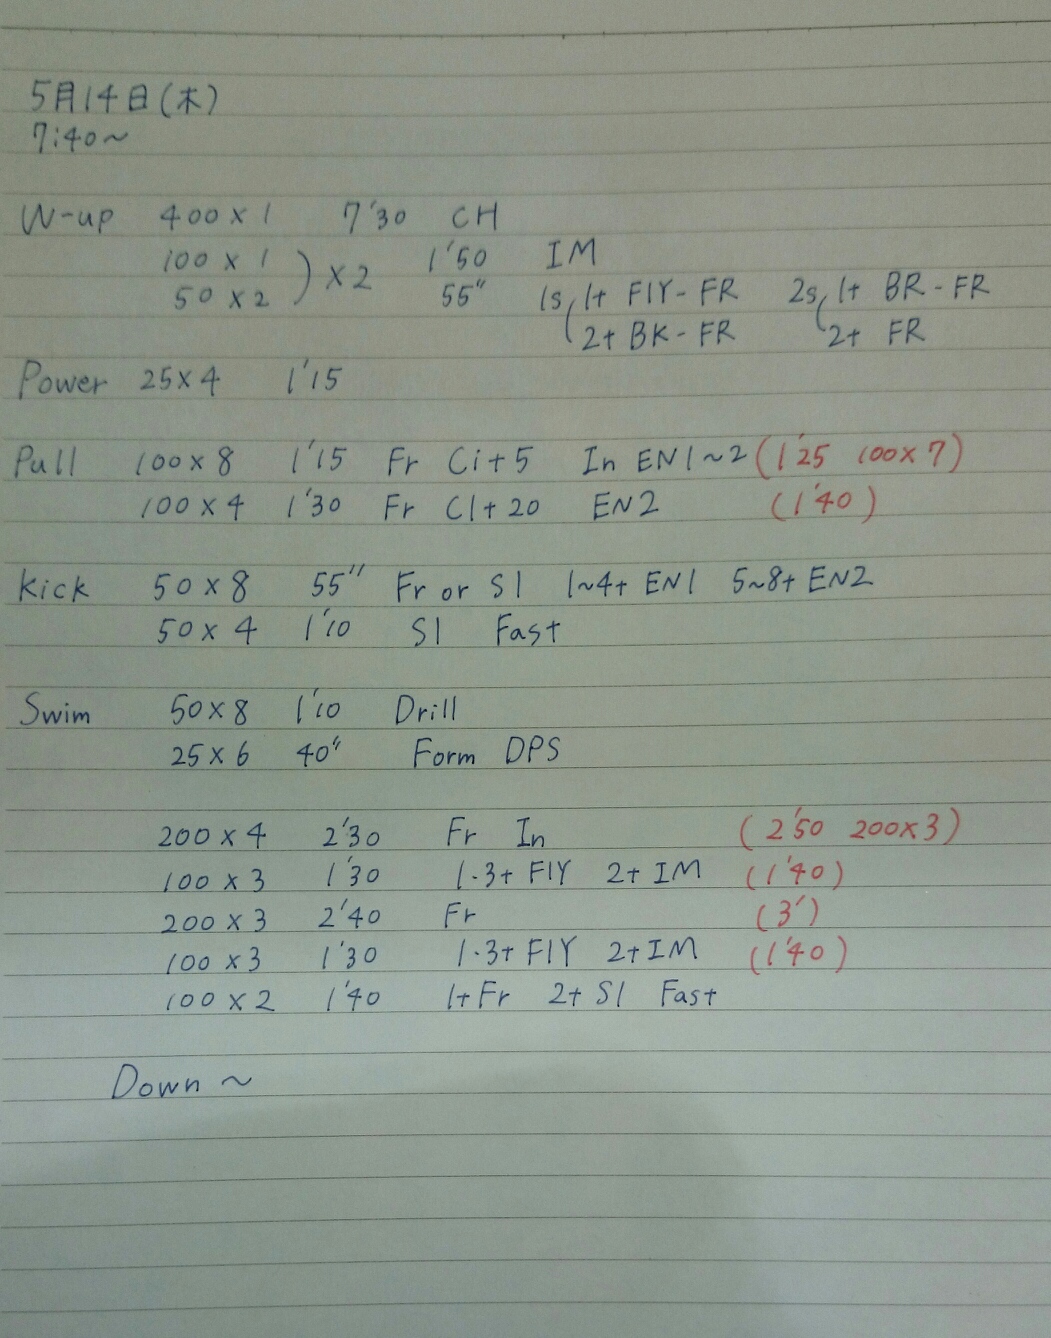 5月14日(木)
7:40〜
W-up 400×1 7'30 CH
100×1 ) ×2 1'50 IM
50×2 55" 1s 1t FlY-FR 2s 1t BR-FR
2t BK-FR 2t FR
Power 25×4 1'15
Pull 100×8 1'15 Fr Ci+5 In EN1~2 (1'25 100×7)
100×4 1'30 Fr C1+20 EN2 (1'40)
Kick 50×8 55" Fr or S1 1~4t EN1 5~8t EN2
50×4 1'10 S1 Fast
Swim 50×8 1'10 Drill
25×6 40" Form DPS
200×4 2'30 Fr In (2'50 200×3)
100×3 1'30 1·3t FlY 2t IM (1'40)
200×3 2'40 Fr (3')
100×3 1'30 1·3t FlY 2t IM (1'40)
100×2 1'40 1t Fr 2t S1 Fast
Down ~